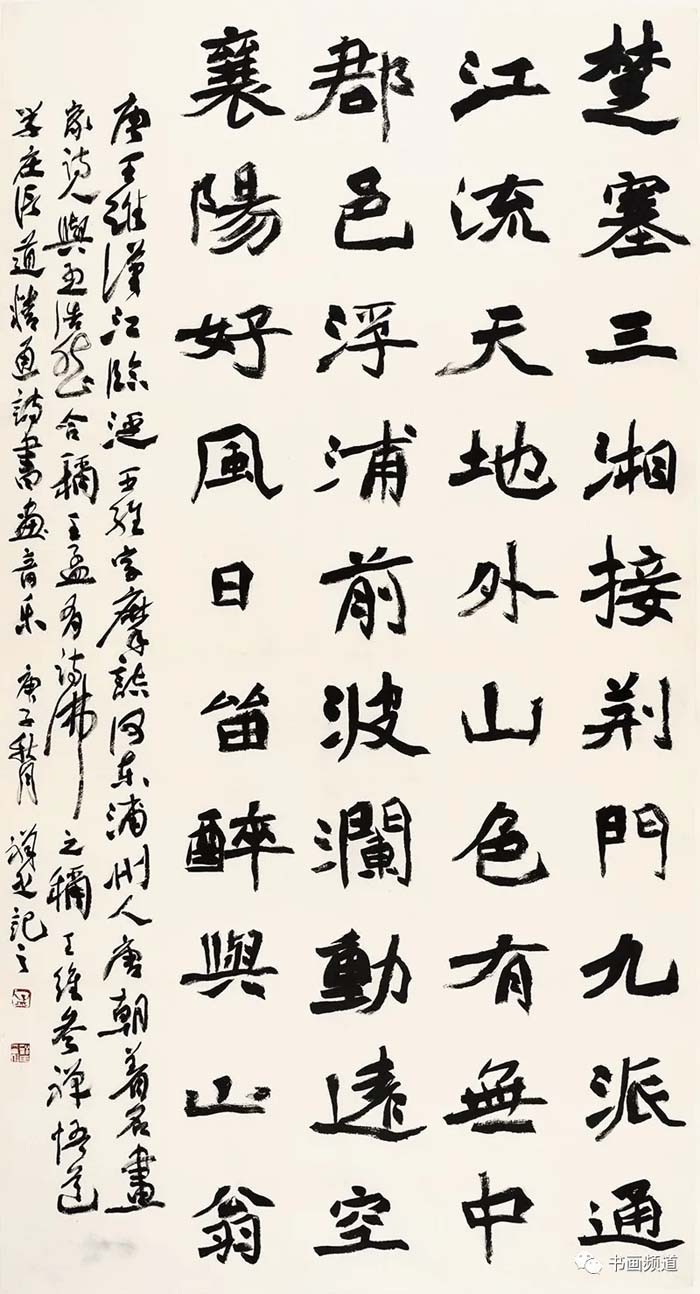 楚塞三湘接荆門九派通
江流天地外山色有無中
郡邑浮浦前波瀾動遠空
襄陽好風日留醉與山翁
唐王維漢江臨泛王維字摩詰河東蒲州人唐朝著名畫
家詩人與孟浩然合稱王孟有詩佛之稱王維參禪悟道
學庄信道精通詩書畫音乐庚子秋月禅之記之
书画频道